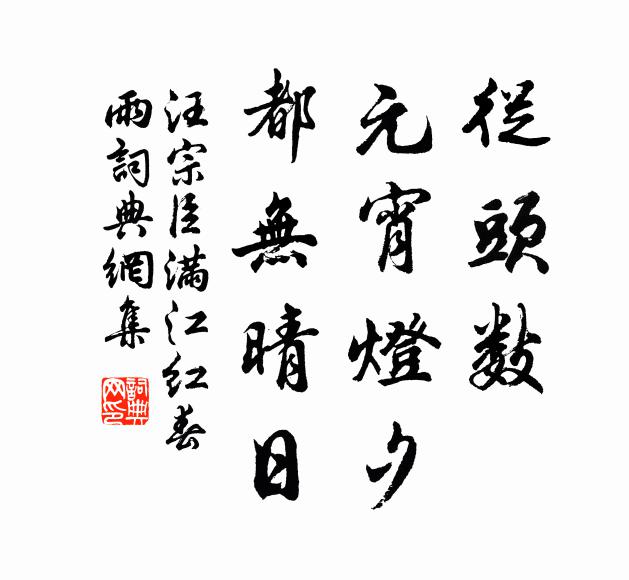 從頭數
元宵燈夕
都無晴日
汪宗臣滿江紅春
雨詞典網集
詞典
网印